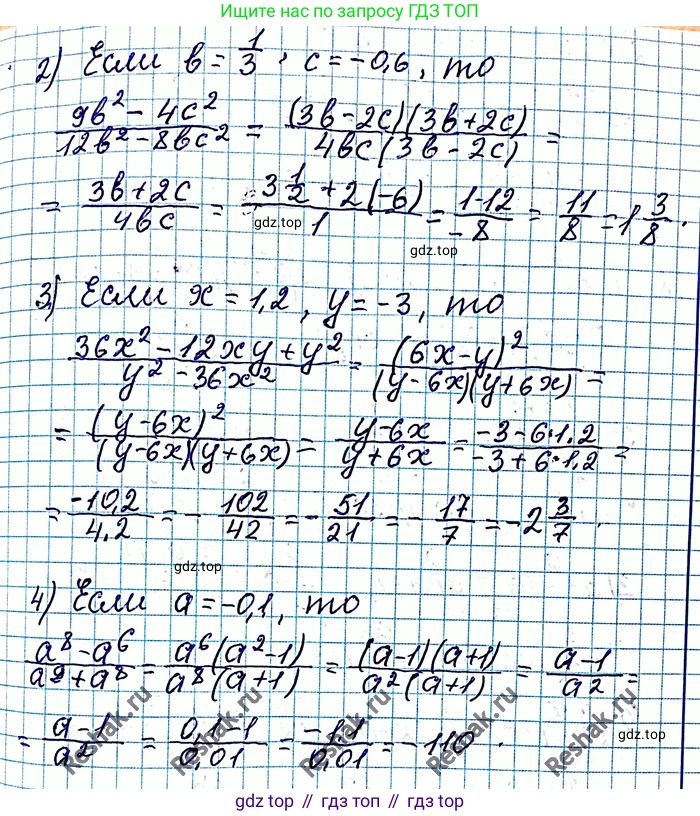 Ищите нас по запросу ГДЗ ТОП
2) Если b = 1/3, c = -0,6, то
(9b² - 4c²)/(12b² - 8bc²) = ((3b - 2c)(3b + 2c))/(4bc(3b - 2c)) =
= (3b + 2c)/(4bc) = (3 1/2 + 2(-6))/1 = (1-12)/(-8) = 11/8 = 1 3/8.
gdz.top
gdz.top
3) Если x = 1,2, y = -3, то
(36x² - 12xy + y²)/(y² - 36x²) = (6x - y)²/((y - 6x)(y + 6x)) =
= (y - 6x)²/((y - 6x)(y + 6x)) = (y - 6x)/(y + 6x) = (-3 - 6·1,2)/(-3 + 6·1,2) =
= (-10,2)/(4,2) = - 102/42 = - 51/21 = - 17/7 = -2 3/7.
gdz.top
4) Если a = -0,1, то
(a⁸ - a⁶)/(a⁹ + a⁸) = (a⁶(a² - 1))/(a⁸(a + 1)) = ((a - 1)(a + 1))/(a²(a + 1)) = (a - 1)/a² =
= (a - 1)/a² = (0,1 - 1)/(0,01) = (-1,1)/(0,01) = -110.
gdz.top
Reshak.ru
Reshak.ru
Reshak.ru
Reshak.ru
Reshak.ru
gdz.top // гдз.топ // gdz.top